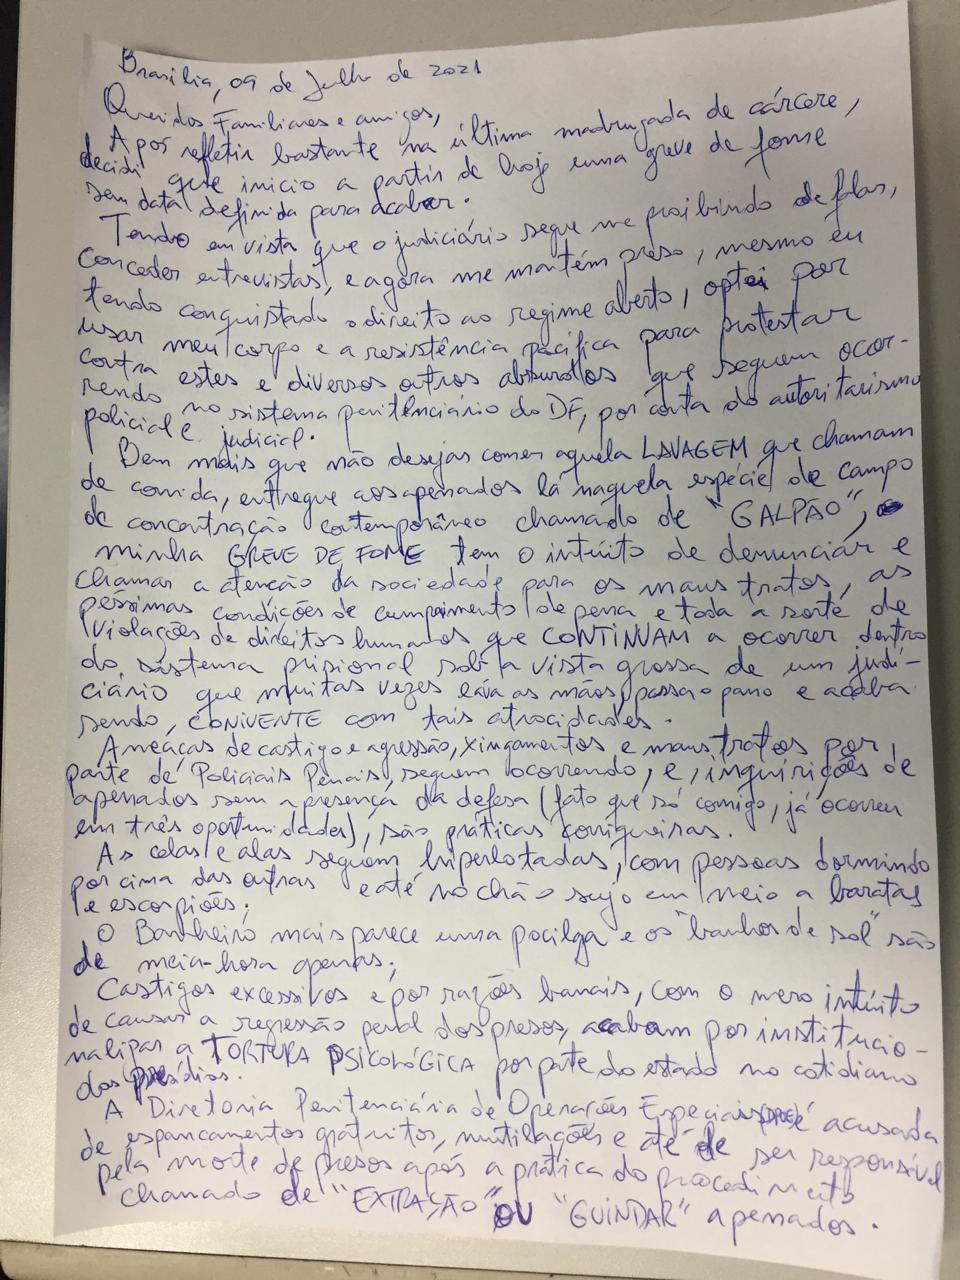 Brasília, 09 de Julho de 2021
Queridos Familiares e amigos,
Após refletir bastante na última madrugada de cárcere,
decidi que inicio a partir de hoje uma greve de fome
sem data definida para acabar.
Tendo em vista que o judiciário segue me proibindo de falar,
conceder entrevistas, e agora me mantém preso, mesmo eu
tendo conquistado o direito ao regime aberto, optei por
usar meu corpo e a resistência pacífica para protestar
contra estes e diversos outros absurdos que seguem ocor-
rendo no sistema penitênciário do DF, por conta do autoritarismo
policial e judicial.
Bem mais que não desejar comer aquela LAVAGEM que chamam
de comida, entregue aos apenados lá naquela espécie de campo
de concentração contemporâneo chamado de "GALPÃO",
minha GREVE DE FOME tem o intúito de denunciar e
chamar a atenção da sociedade para os maus tratos, as
péssimas condições de cumprimento de pena e toda a sorte de
violações de direitos humanos que CONTINUAM a ocorrer dentro
do sistema prisional sob a vista grossa de um judi-
ciário que muitas vezes lava as mãos, passa o pano e acaba
sendo, CONIVENTE com tais atrocidades.
Ameaças de castigo e agressão, xingamentos e maus tratos por
parte de Policiais Penais, seguem ocorrendo, e, inquirições de
apenados sem a presença da defesa (fato que só comigo, já ocorreu
em três oportunidades), são práticas corriqueiras.
As celas e alas seguem hiperlotadas, com pessoas dormindo
por cima das outras e até no chão sujo em meio a baratas
e escorpiões;
O Banheiro mais parece uma pocilga e os "banhos de sol" são
de meia-hora apenas;
Castigos excessivos e por razões banais, com o mero intúito
de causar a regressão penal dos presos, acabam por institucio-
nalizar a TORTURA PSICOLÓGICA por parte do estado no cotidiano
dos presídios.
A Diretoria Penitenciária de Operações Especiais (DPOE) é acusada
de espancamentos gratuitos, mutilações e até de ser responsável
pela morte de presos após a prática do procedimento
chamado de "EXTRAÇÃO" OU "GUINDAR" apenados.